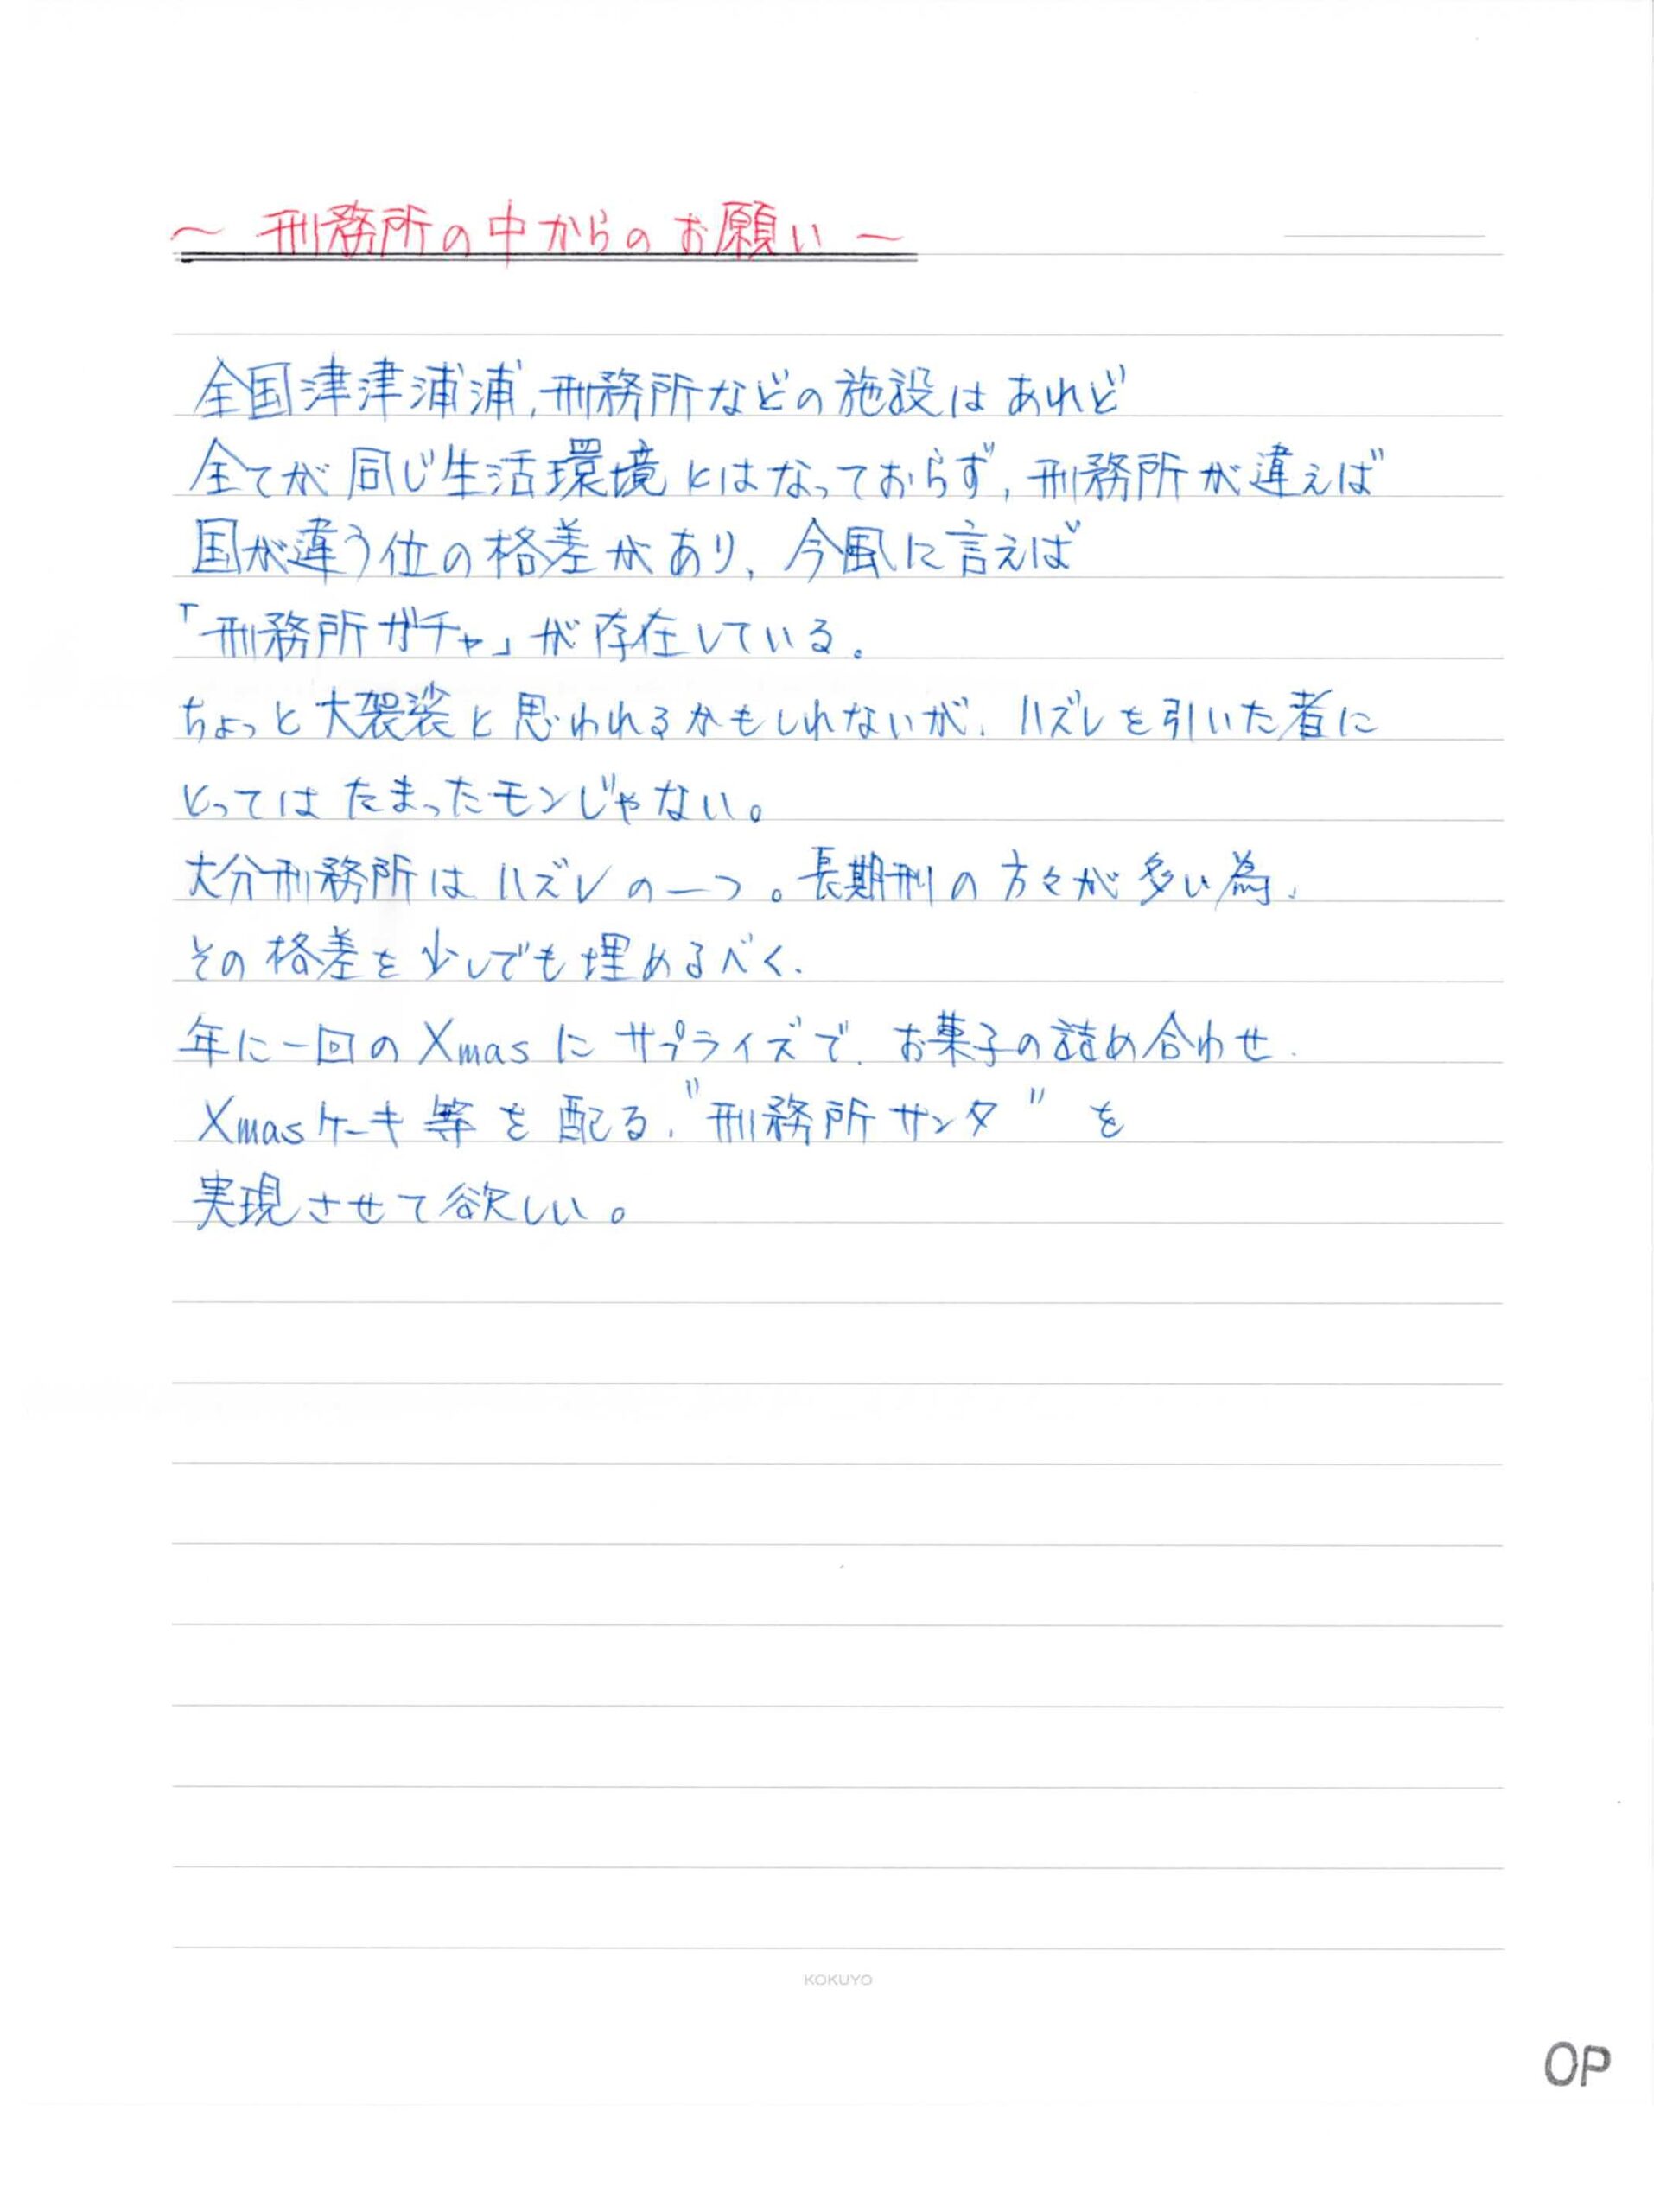 ～ 刑務所の中からのお願い ～
全国津津浦浦、刑務所などの施設はあれど
全てが同じ生活環境とはなっておらず、刑務所が違えば
国が違う位の格差があり、今風に言えば
「刑務所ガチャ」が存在している。
ちょっと大袈裟と思われるかもしれないが、ハズレを引いた者に
とってはたまったモンじゃない。
大分刑務所はハズレの一つ。長期刑の方々が多い為、
その格差を少しでも埋めるべく、
年に一回のXmasにサプライズで、お菓子の詰め合わせ、
Xmasケーキ等を配る、"刑務所サンタ"を
実現させて欲しい。
KOKUYO
OP